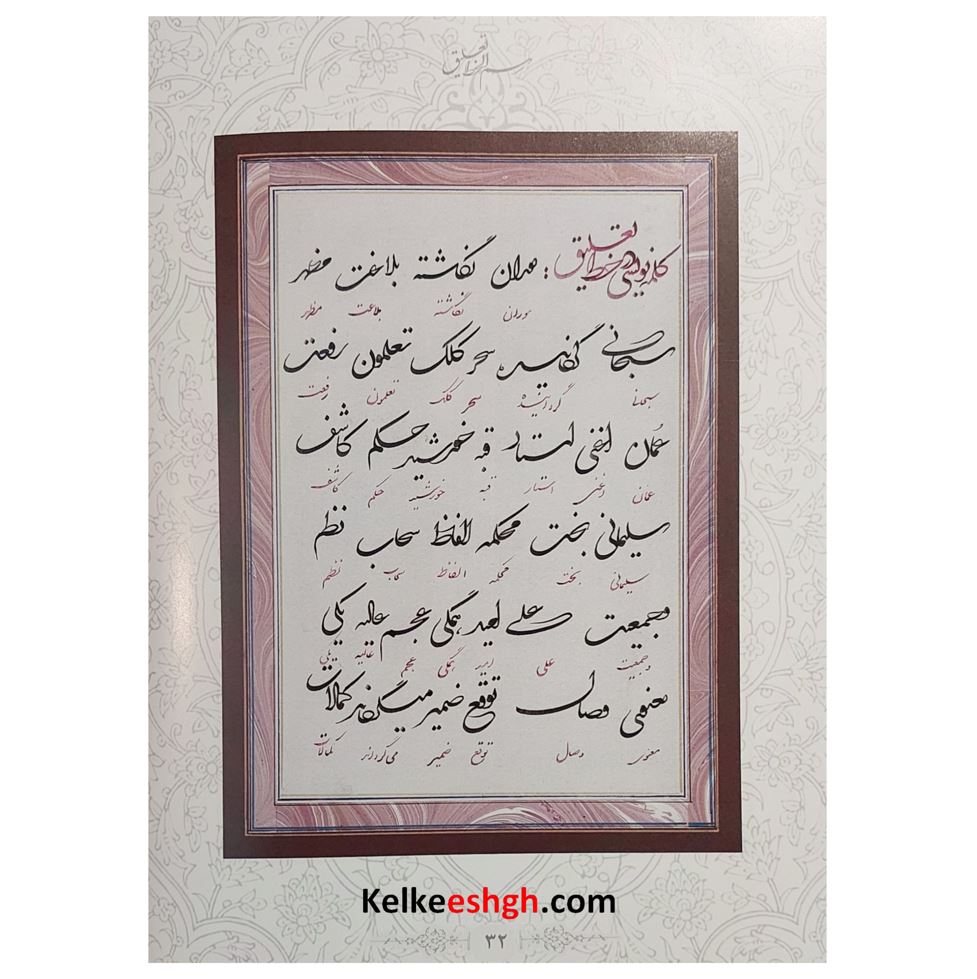 کلمه نویسی در خط تعلیق : دوران نگاشته بلاغت مظهر
دوران نگاشته بلاغت مظهر
سبحانی گردانیده سحر کلک تعلمون رفعت
سبحانی گردانیده سحر کلک تعلمون رفعت
عمان استار قبه خورشید حکم کاشف
عمان استار قبه خورشید حکم کاشف
سلیمانی بخت محکمه الفاظ سحاب نظم
سلیمانی بخت محکمه الفاظ سحاب نظم
وجمعیت علی همگی عجم عالیه
وجمعیت علی همگی عجم عالیه
معنوی وصال توقع ضمیر میگرداند کمالات
معنوی وصال توقع ضمیر می‌گرداند کمالات
Kelkeeshgh.com
۳۲